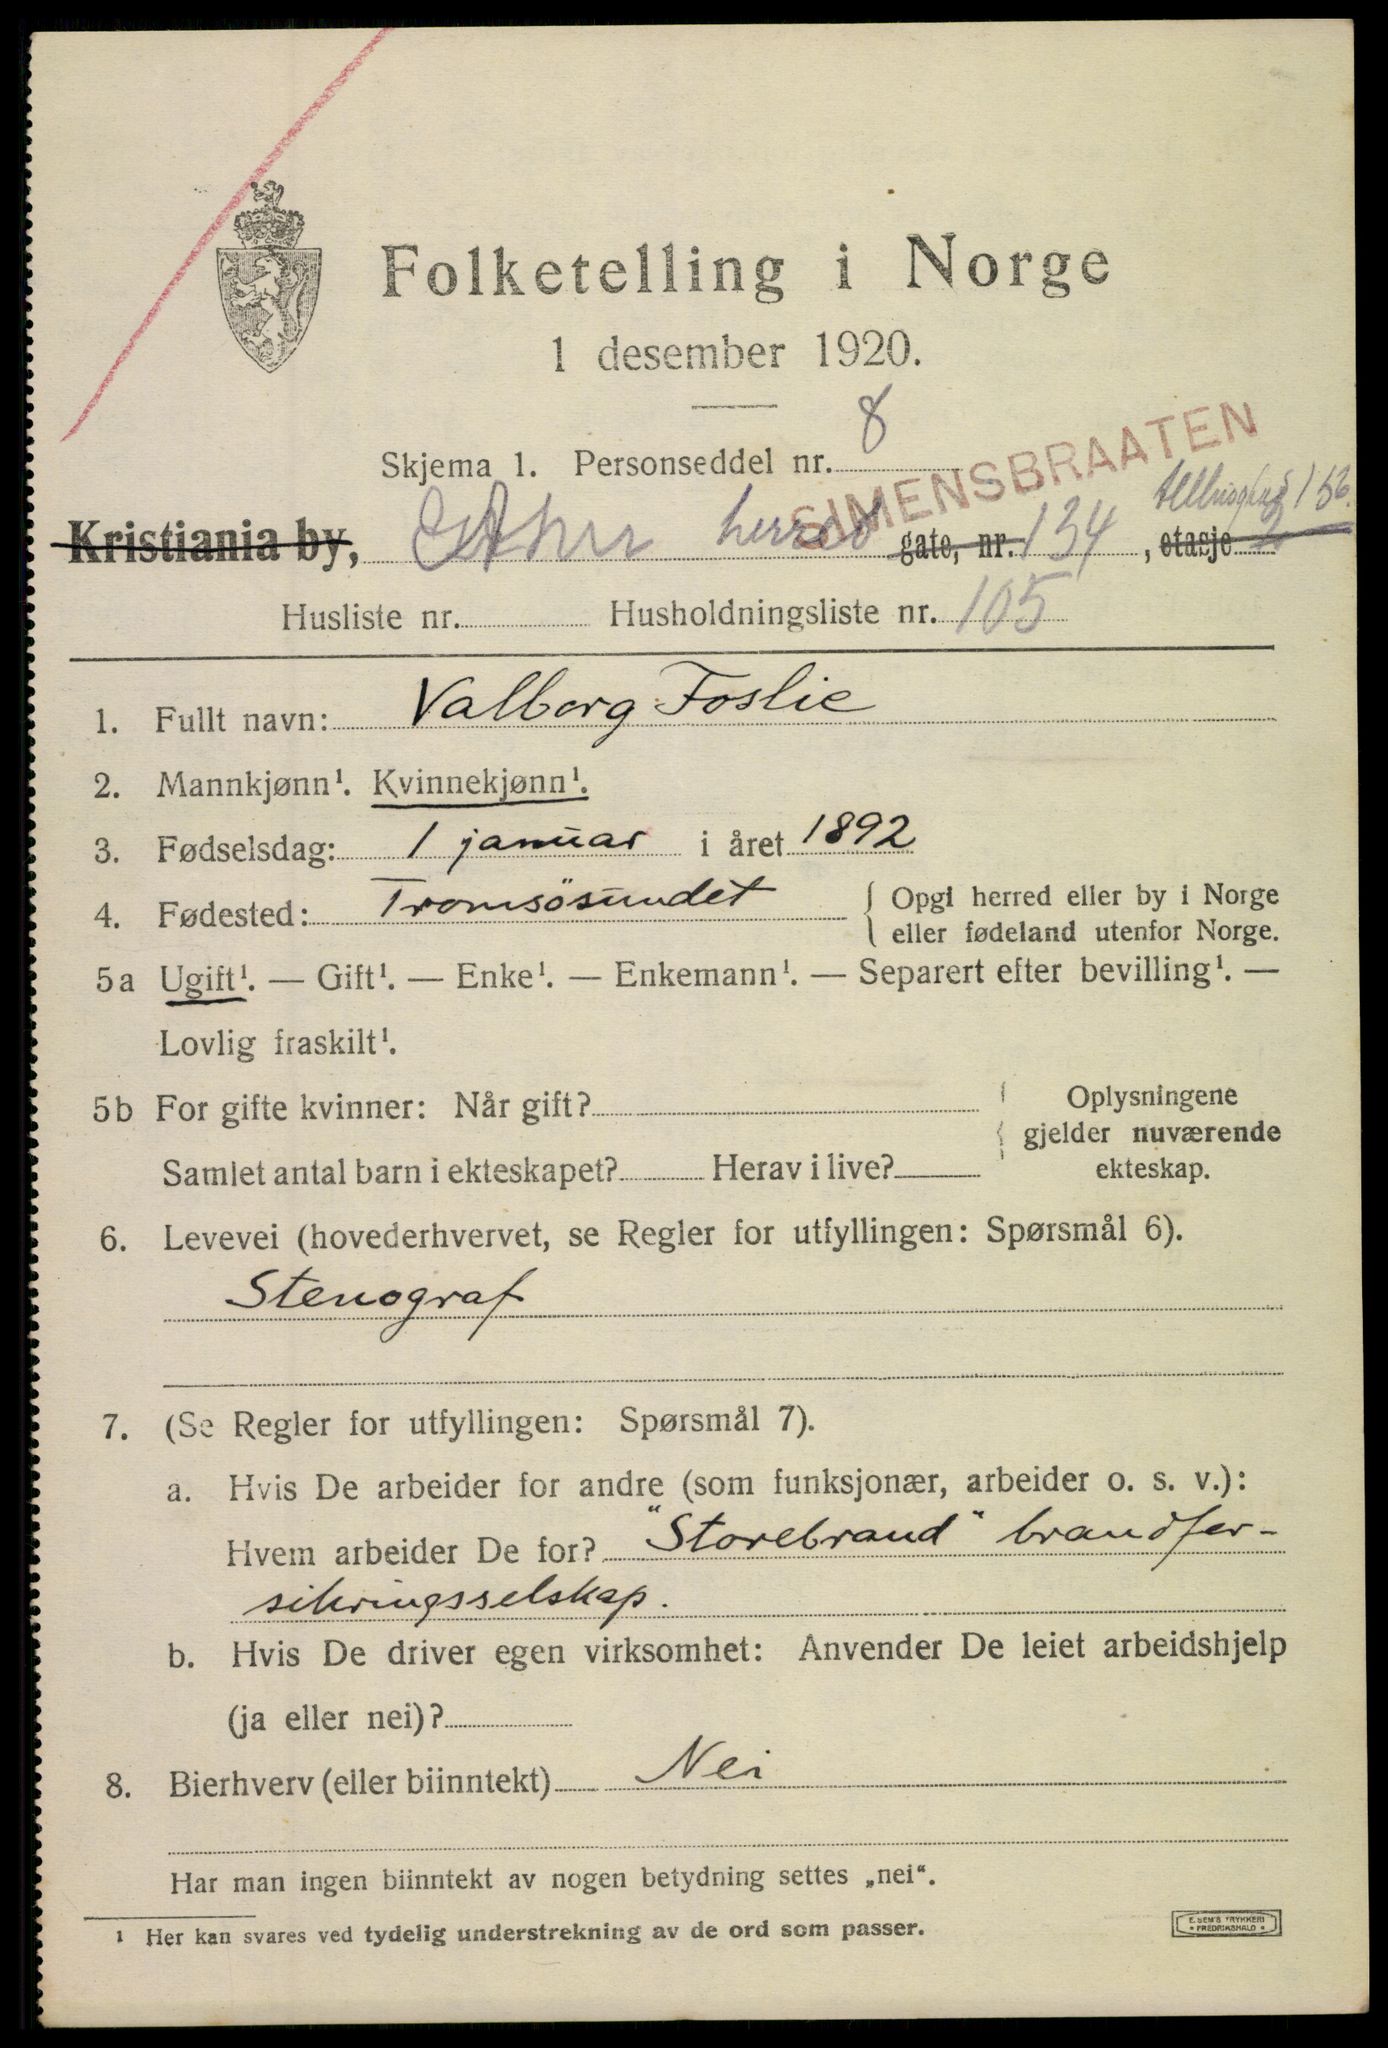 Folketelling i Norge
1 desember 1920.
Skjema 1. Personseddel nr. 8
SIMENSBRAATEN
Kristiania by, Aker herred gate, nr. 134, etasje 2
156.
Husliste nr. Husholdningsliste nr. 105
1. Fullt navn: Valborg Foslie
2. Mannkjønn¹. Kvinnekjønn¹.
3. Fødselsdag: 1 januar i året 1892
4. Fødested: Tromsösundet { Opgi herred eller by i Norge
eller fødeland utenfor Norge.
5a Ugift¹. — Gift¹. — Enke¹. — Enkemann¹. — Separert efter bevilling¹. —
Lovlig fraskilt¹.
5b For gifte kvinner: Når gift? Oplysningene
gjelder nuværende
Samlet antal barn i ekteskapet? Herav i live? ekteskap.
6. Levevei (hovederhvervet, se Regler for utfyllingen: Spørsmål 6).
Stenograf
7. (Se Regler for utfyllingen: Spørsmål 7).
a. Hvis De arbeider for andre (som funksjonær, arbeider o. s. v.):
Hvem arbeider De for? "Storebrand" brandfor-
sikringsselskap.
b. Hvis De driver egen virksomhet: Anvender De leiet arbeidshjelp
(ja eller nei)?
8. Bierhverv (eller biinntekt) Nei
Har man ingen biinntekt av nogen betydning settes „nei“.
¹ Her kan svares ved tydelig understrekning av de ord som passer.
E. SEM'S TRYKKERI
• FREDRIKSHALD •